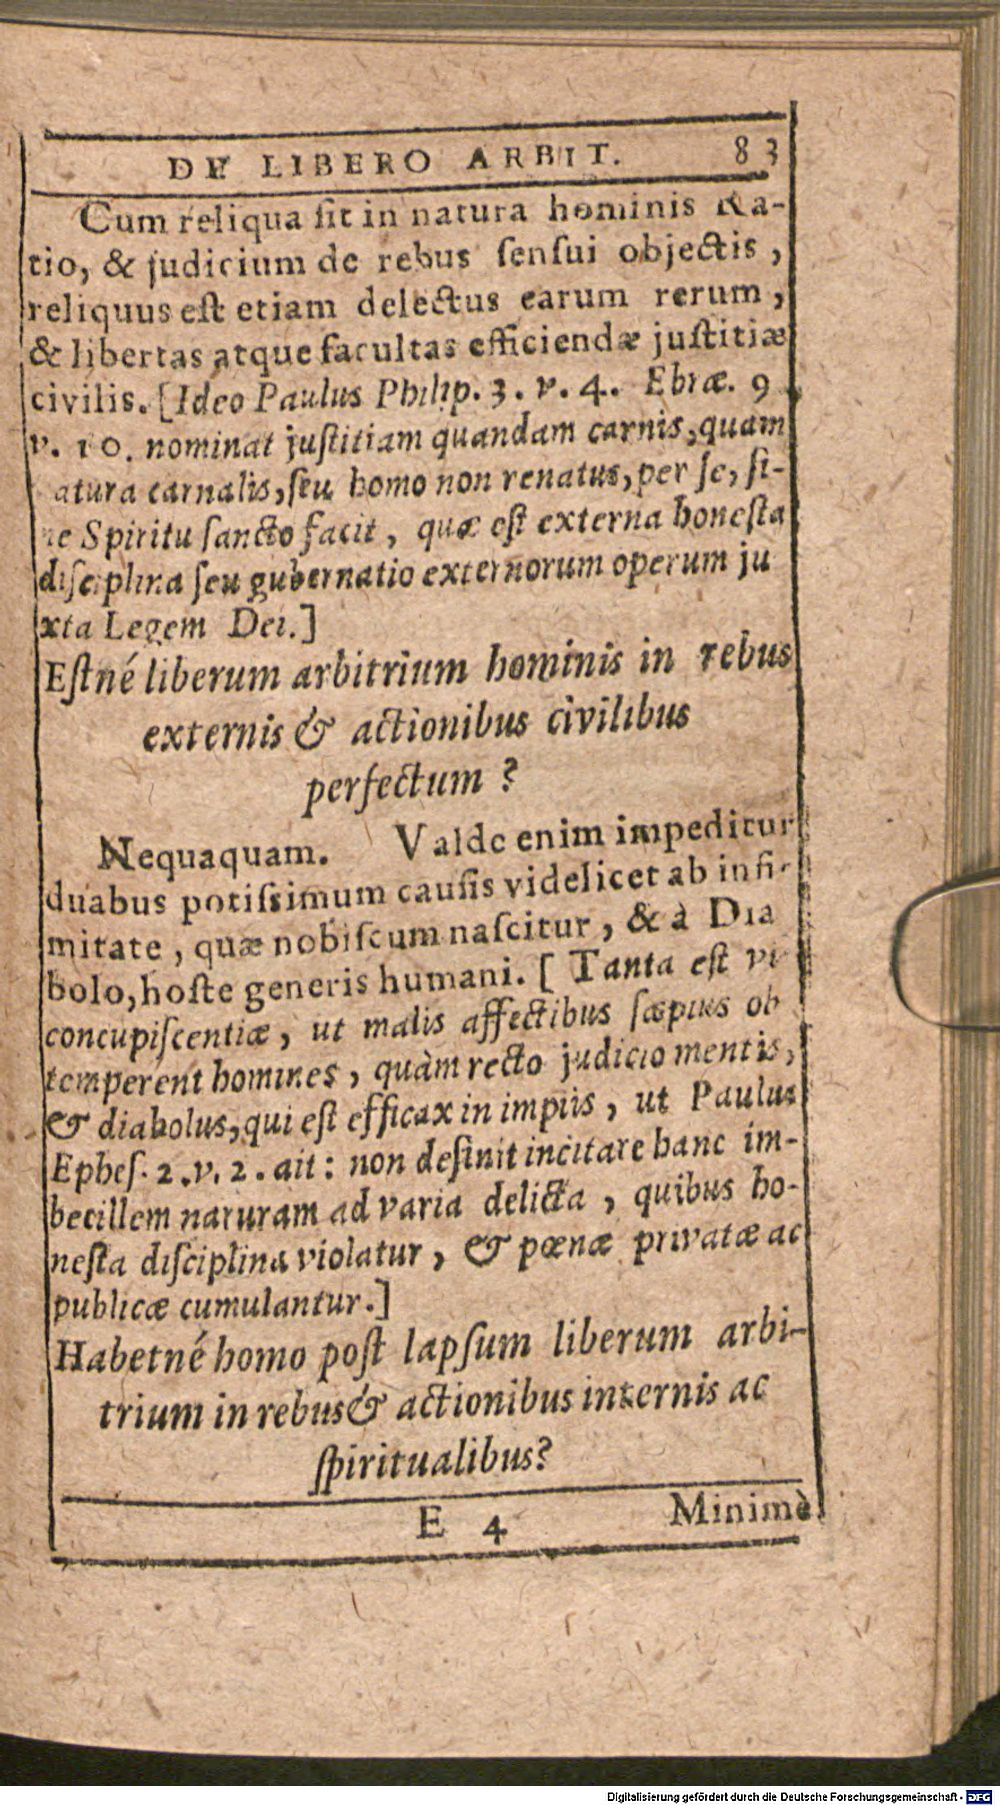 DE LIBERO ARBIT. 83
Cum reliqua ſit in natura hominis Ra-
tio, & judicium de rebus ſenſui objectis,
reliquus eſt etiam delectus earum rerum,
& libertas atque facultas efficiendæ juſtitiæ
civilis. [Ideo Paulus Philip. 3. v. 4. Ebræ. 9
v. 10. nominat juſtitiam quandam carnis, quam
atura carnalis, ſeu homo non renatus, per ſe, ſi-
ne Spiritu ſancto facit, quæ eſt externa honeſta
diſciplina ſeu gubernatio externorum operum ju
xta Legem Dei.]
Eſtné liberum arbitrium hominis in rebus
externis & actionibus civilibus
perfectum?
Nequaquam. Valde enim impeditur
duabus potiſsimum cauſis videlicet ab infi-
mitate, quæ nobiſcum naſcitur, & à Dia
bolo, hoſte generis humani. [Tanta eſt vi
concupiſcentiæ, ut malis affectibus ſæpius ob
temperent homines, quàm recto judicio mentis,
& diabolus, qui eſt efficax in impiis, ut Paulus
Epheſ. 2. v. 2. ait: non deſinit incitare hanc im-
becillem naturam ad varia delicta, quibus ho-
neſta diſciplina violatur, & pœnæ privatæ ac
publicæ cumulantur.]
Habetné homo poſt lapſum liberum arbi-
trium in rebus & actionibus internis ac
ſpiritualibus?
E 4 Minimè
Digitalisierung gefördert durch die Deutsche Forschungsgemeinschaft - DFG